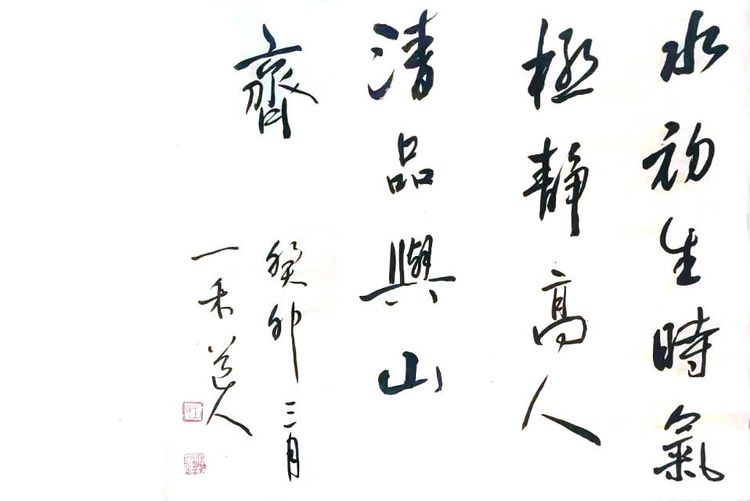 水初生時氣
極靜高人
清品與山
齊
癸卯三月
一禾道人